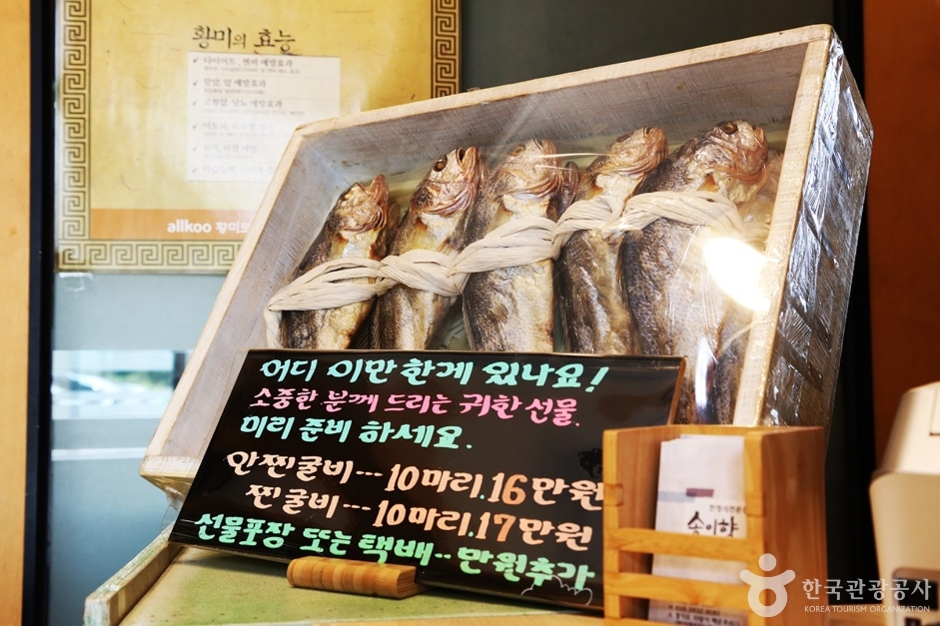 황미의 효능
다이어트, 변비 예방효과
항암, 암 예방효과
고혈압, 당뇨 예방효과
allkoo 황미로
어디 이만한게 있나요!
소중한 분께 드리는 귀한 선물.
미리 준비 하세요.
안찐굴비---10마리.16만원
찐굴비---10마리.17만원
선물포장 또는 택배--만원추가
송이향
한국관광공사
KOREA TOURISM ORGANIZATION